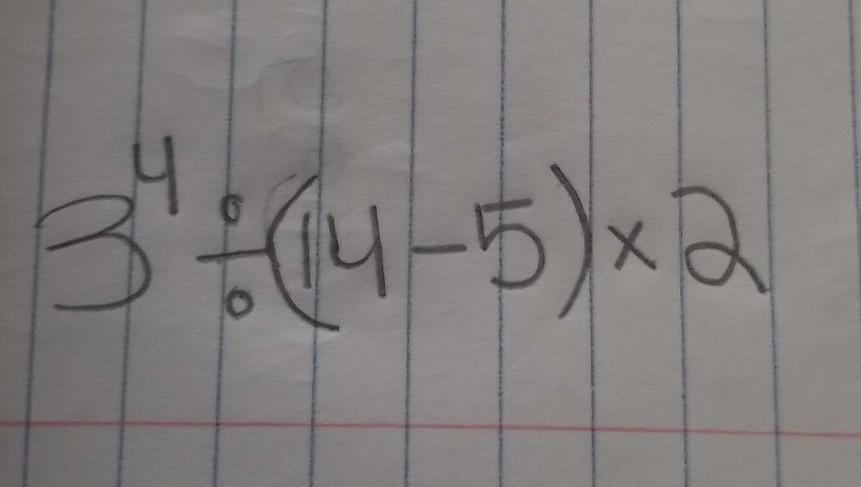 3⁴ ÷ (14 - 5) × 2